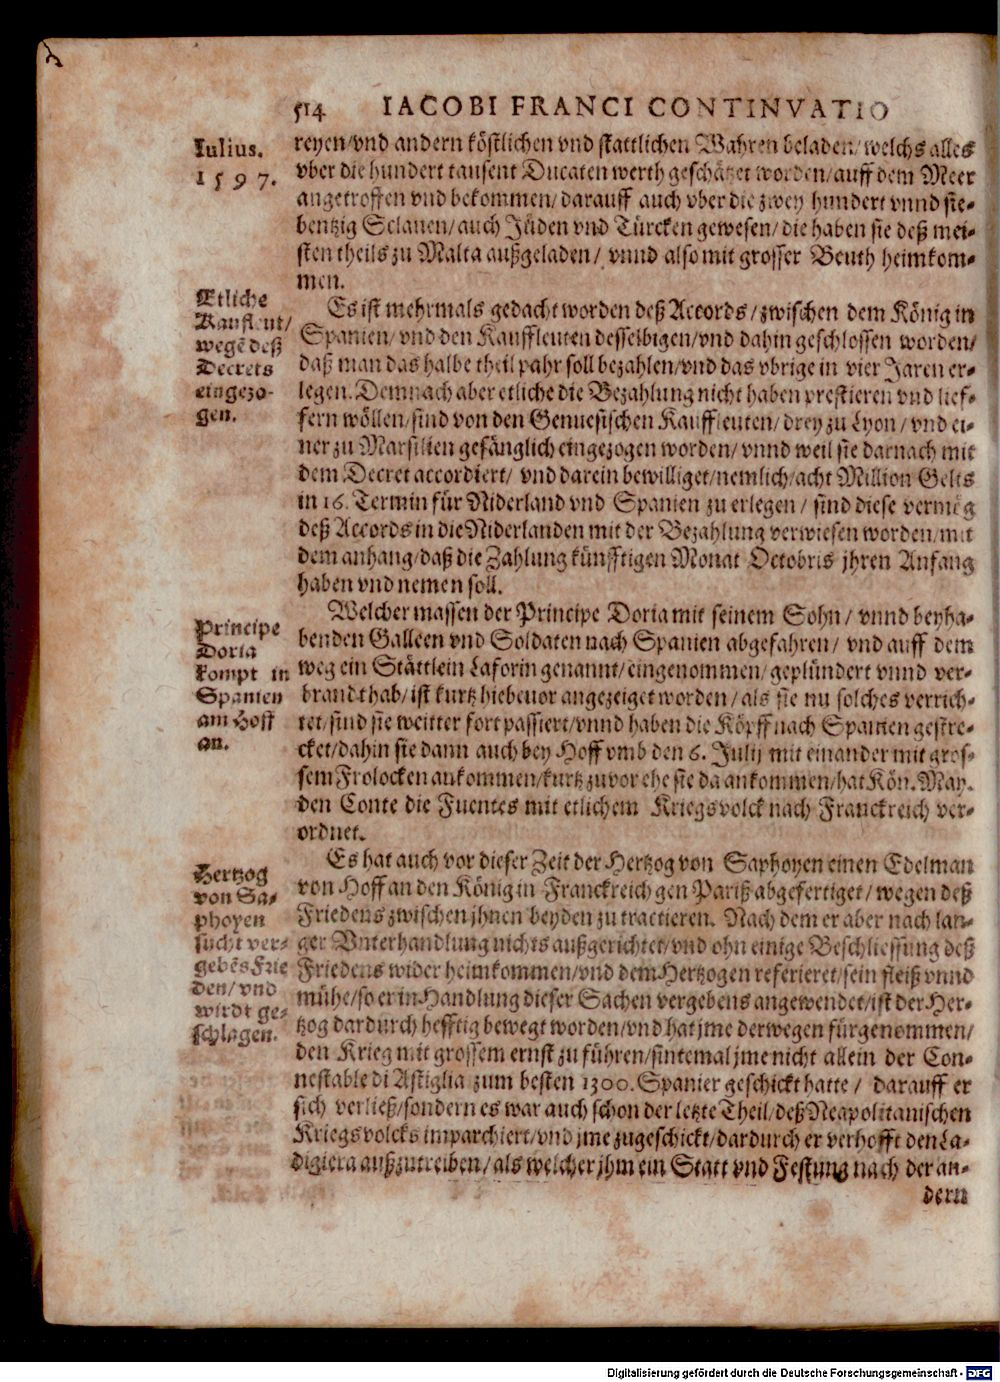 514 IACOBI FRANCI CONTINVATIO
Iulius.
1597.
reyen/vnd andern köstlichen vnd stattlichen Wahren beladen/welchs alles
vber die hundert tausent Ducaten werth geschätzet worden/auff dem Meer
angetroffen vnd bekommen/darauff auch vber die zwey hundert vnnd sie-
bentzig Sclauen/auch Jüden vnd Türcken gewesen/die haben sie deß mei-
sten theils zu Malta außgeladen/ vnnd also mit grosser Beuth heimkom-
men.
Etliche
Kauffleut/
wegē deß
Decrets
eingezo-
gen.
Es ist mehrmals gedacht worden deß Accords/zwischen dem König in
Spanien/vnd den Kauffleuten desselbigen/vnd dahin geschlossen worden/
daß man das halbe theil pahr soll bezahlen/vnd das vbrige in vier Jaren er-
legen. Demnach aber etliche die Bezahlung nicht haben prestieren vnd lief-
fern wöllen/sind von den Genuesischen Kauffleuten/drey zu Lyon/vnd ei-
ner zu Marsilien gefänglich eingezogen worden/vnnd weil sie darnach mit
dem Decret accordiert/ vnd darein bewilliget/nemlich/acht Million Gelts
in 16. Termin für Niderland vnd Spanien zu erlegen/ sind diese vermög
deß Accords in die Niderlanden mit der Bezahlung verwiesen worden/mit
dem anhang/daß die Zahlung künfftigen Monat Octobris jhren Anfang
haben vnd nemen soll.
Principe
Doria
kompt in
Spanien
am Hoff
an.
Welcher massen der Principe Doria mit seinem Sohn/ vnnd beyha-
benden Galleen vnd Soldaten nach Spanien abgefahren/ vnd auff dem
weg ein Stättlein Laforin genannt/eingenommen/geplündert vnnd ver-
brandt hab/ist kurtz hiebeuor angezeiget worden/als sie nu solches verrich-
tet/sind sie weitter fort passiert/vnnd haben die Köpff nach Spanien gestre-
cket/dahin sie dann auch bey Hoff vmb den 6. Julij mit einander mit gros-
sem Frolocken ankommen/kurtz zuvor ehe sie da ankommen/hat Kön. May.
den Conte die Fuentes mit etlichem Kriegsvolck nach Franckreich ver-
ordnet.
Hertzog
von Sa-
phoyen
sucht ver-
gebēs Frie
den/ vnd
wirdt ge-
schlagen.
Es hat auch vor dieser Zeit der Hertzog von Saphoyen einen Edelman
von Hoff an den König in Franckreich gen Pariß abgefertiget/wegen deß
Friedens zwischen jhnen beyden zu tractieren. Nach dem er aber nach lan-
ger Vnterhandlung nichts außgerichtet/vnd ohn einige Beschliessung deß
Friedens wider heimkommen/vnd dem Hertzogen referieret/sein fleiß vnnd
mühe/so er in Handlung dieser Sachen vergebens angewendet/ist der Her-
tzog dardurch hefftig bewegt worden/vnd hat jme derwegen fürgenommen/
den Krieg mit grossem ernst zu führen/sintemal jme nicht allein der Con-
nestable di Astiglia zum besten 1300. Spanier geschickt hatte/ darauff er
sich verließ/sondern es war auch schon der letzte Theil/deß Neapolitanischen
Kriegsvolcks imparchiert/vnd jme zugeschickt/dardurch er verhofft den La-
digiera außzutreiben/als welcher jhm ein Statt vnd Festung nach der an-
dern
Digitalisierung gefördert durch die Deutsche Forschungsgemeinschaft - DFG